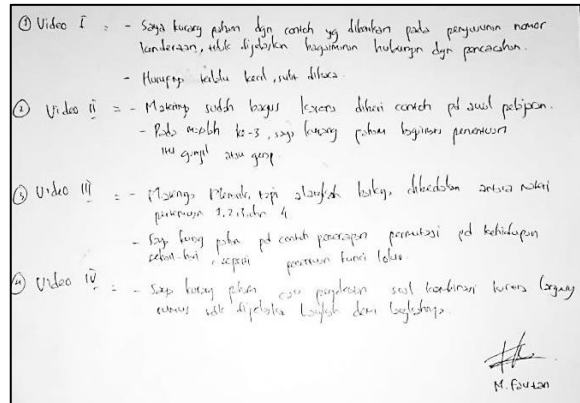 ① Video I = - Saya kurang paham dgn contoh yg diberikan pada penyusunan nomor
kendaraan, tidak dijelaskan bagaimana hubungan dgn pencacahan.
- Hurufnya terlalu kecil, sulit dibaca.
② Video II = - Materinya sudah bagus karena diberi contoh pd awal pelajaran.
- Pada masalah ke-3, saya kurang paham bagaimana penentuan
itu ganjil atau genap.
③ Video III = - Materinya menarik, tapi alangkah baiknya dibedakan antara materi
pertemuan 1, 2, 3, dan 4
- Saya kurang paham pd contoh penerapan permutasi pd kehidupan
sehari-hari, seperti kunci loker.
④ Video IV = - Saya kurang paham cara pengerjaan soal kombinasi karena
rumus tdk dijelaskan langkah demi langkahnya.
M. Fauzan